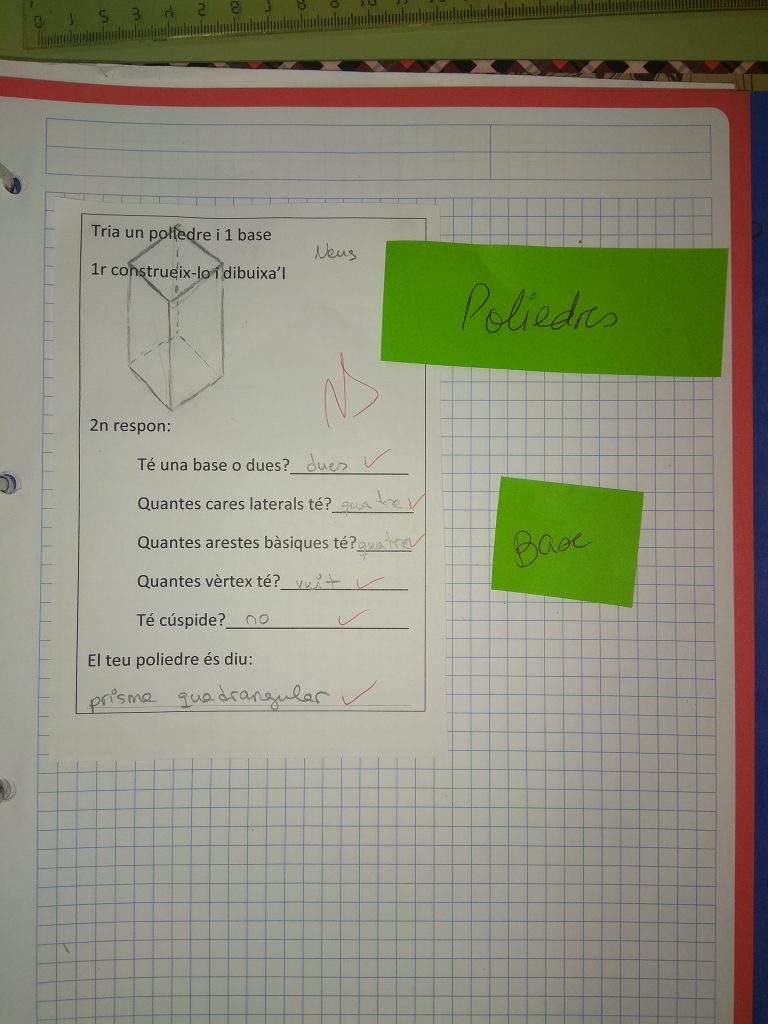 Tria un poliedre i 1 base
Neus
1r construeix-lo i dibuixa'l
Poliedres
2n respon:
Té una base o dues? dues
Quantes cares laterals té? quatre
Quantes arestes bàsiques té? quatre
Base
Quantes vèrtex té? vuit
Té cúspide? no
El teu poliedre és diu:
prisma quadrangular